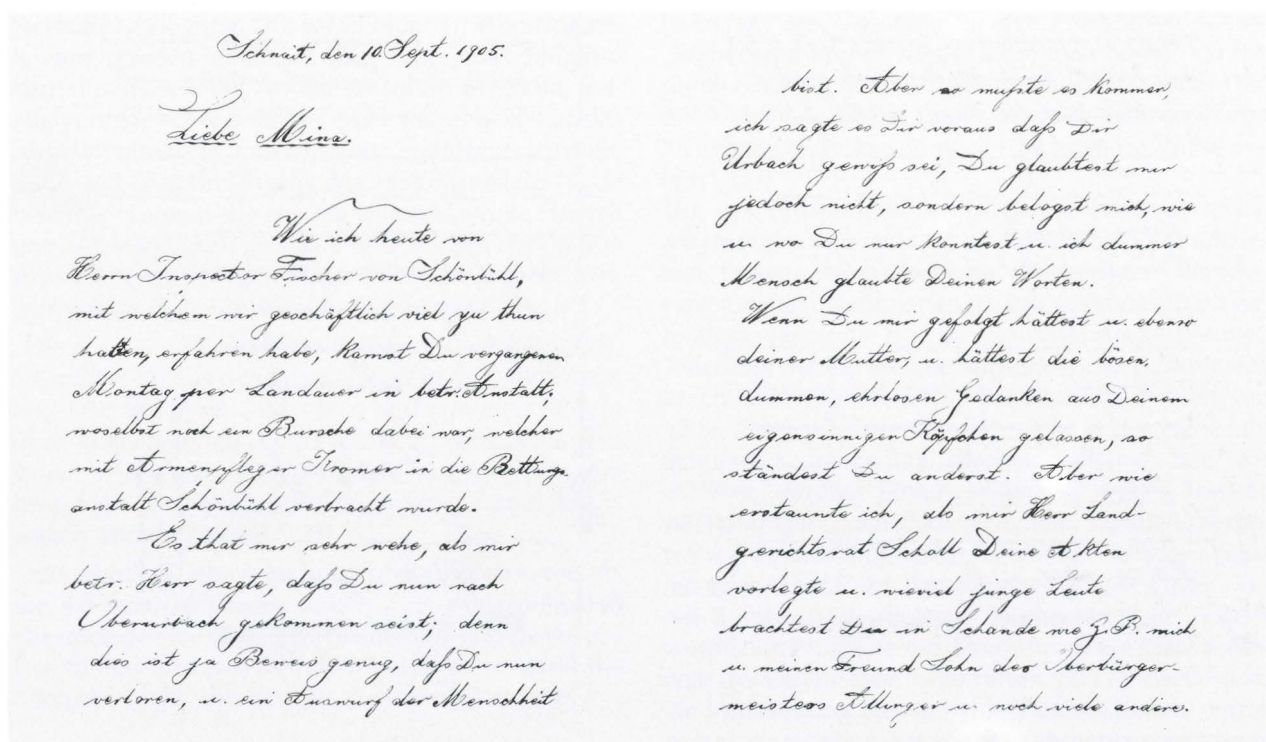 Schnait, den 10. Sept. 1905.
Liebe Mina.
Wie ich heute von
Herrn Inspector Fischer von Schönbühl,
mit welchem wir geschäftlich viel zu thun
hatten, erfahren habe, kamst Du vergangenen
Montag per Landauer in betr. Anstalt,
woselbst noch ein Bursche dabei war, welcher
mit Armenpfleger Kromer in die Rettungs-
anstalt Schönbühl verbracht wurde.
Es that mir sehr wehe, als mir
betr. Herr sagte, daß Du nun nach
Oberurbach gekommen seist; denn
dies ist ja Beweis genug, daß Du nun
verloren, u. ein Auswurf der Menschheit
bist. Aber so mußte es kommen,
ich sagte es Dir voraus daß Dir
Urbach gewiß sei, Du glaubtest mir
jedoch nicht, sondern belogst mich, wie
u. wo Du nur konntest u. ich dummer
Mensch glaubte Deinen Worten.
Wenn Du mir gefolgt hättest u. ebenso
deiner Mutter, u. hättest die bösen,
dummen, ehrlosen Gedanken aus Deinem
eigensinnigen Köpfchen gelassen, so
ständest Du anderst. Aber wie
erstaunte ich, als mir Herr Land-
gerichtsrat Schall Deine Akten
vorlegte u. wieviel junge Leute
brachtest Du in Schande wie z. B. mich
u. meinen Freund Sohn des Oberbürger-
meisters u. noch viele andere.